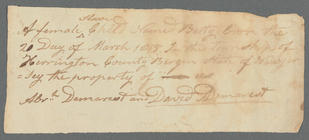 Slave
A female Child Named Betty Born the
20 Day of March 18 In the township of
Herrington County Bergen State of New Jer
=sey the property of
Abrm Demarest and David Demarest